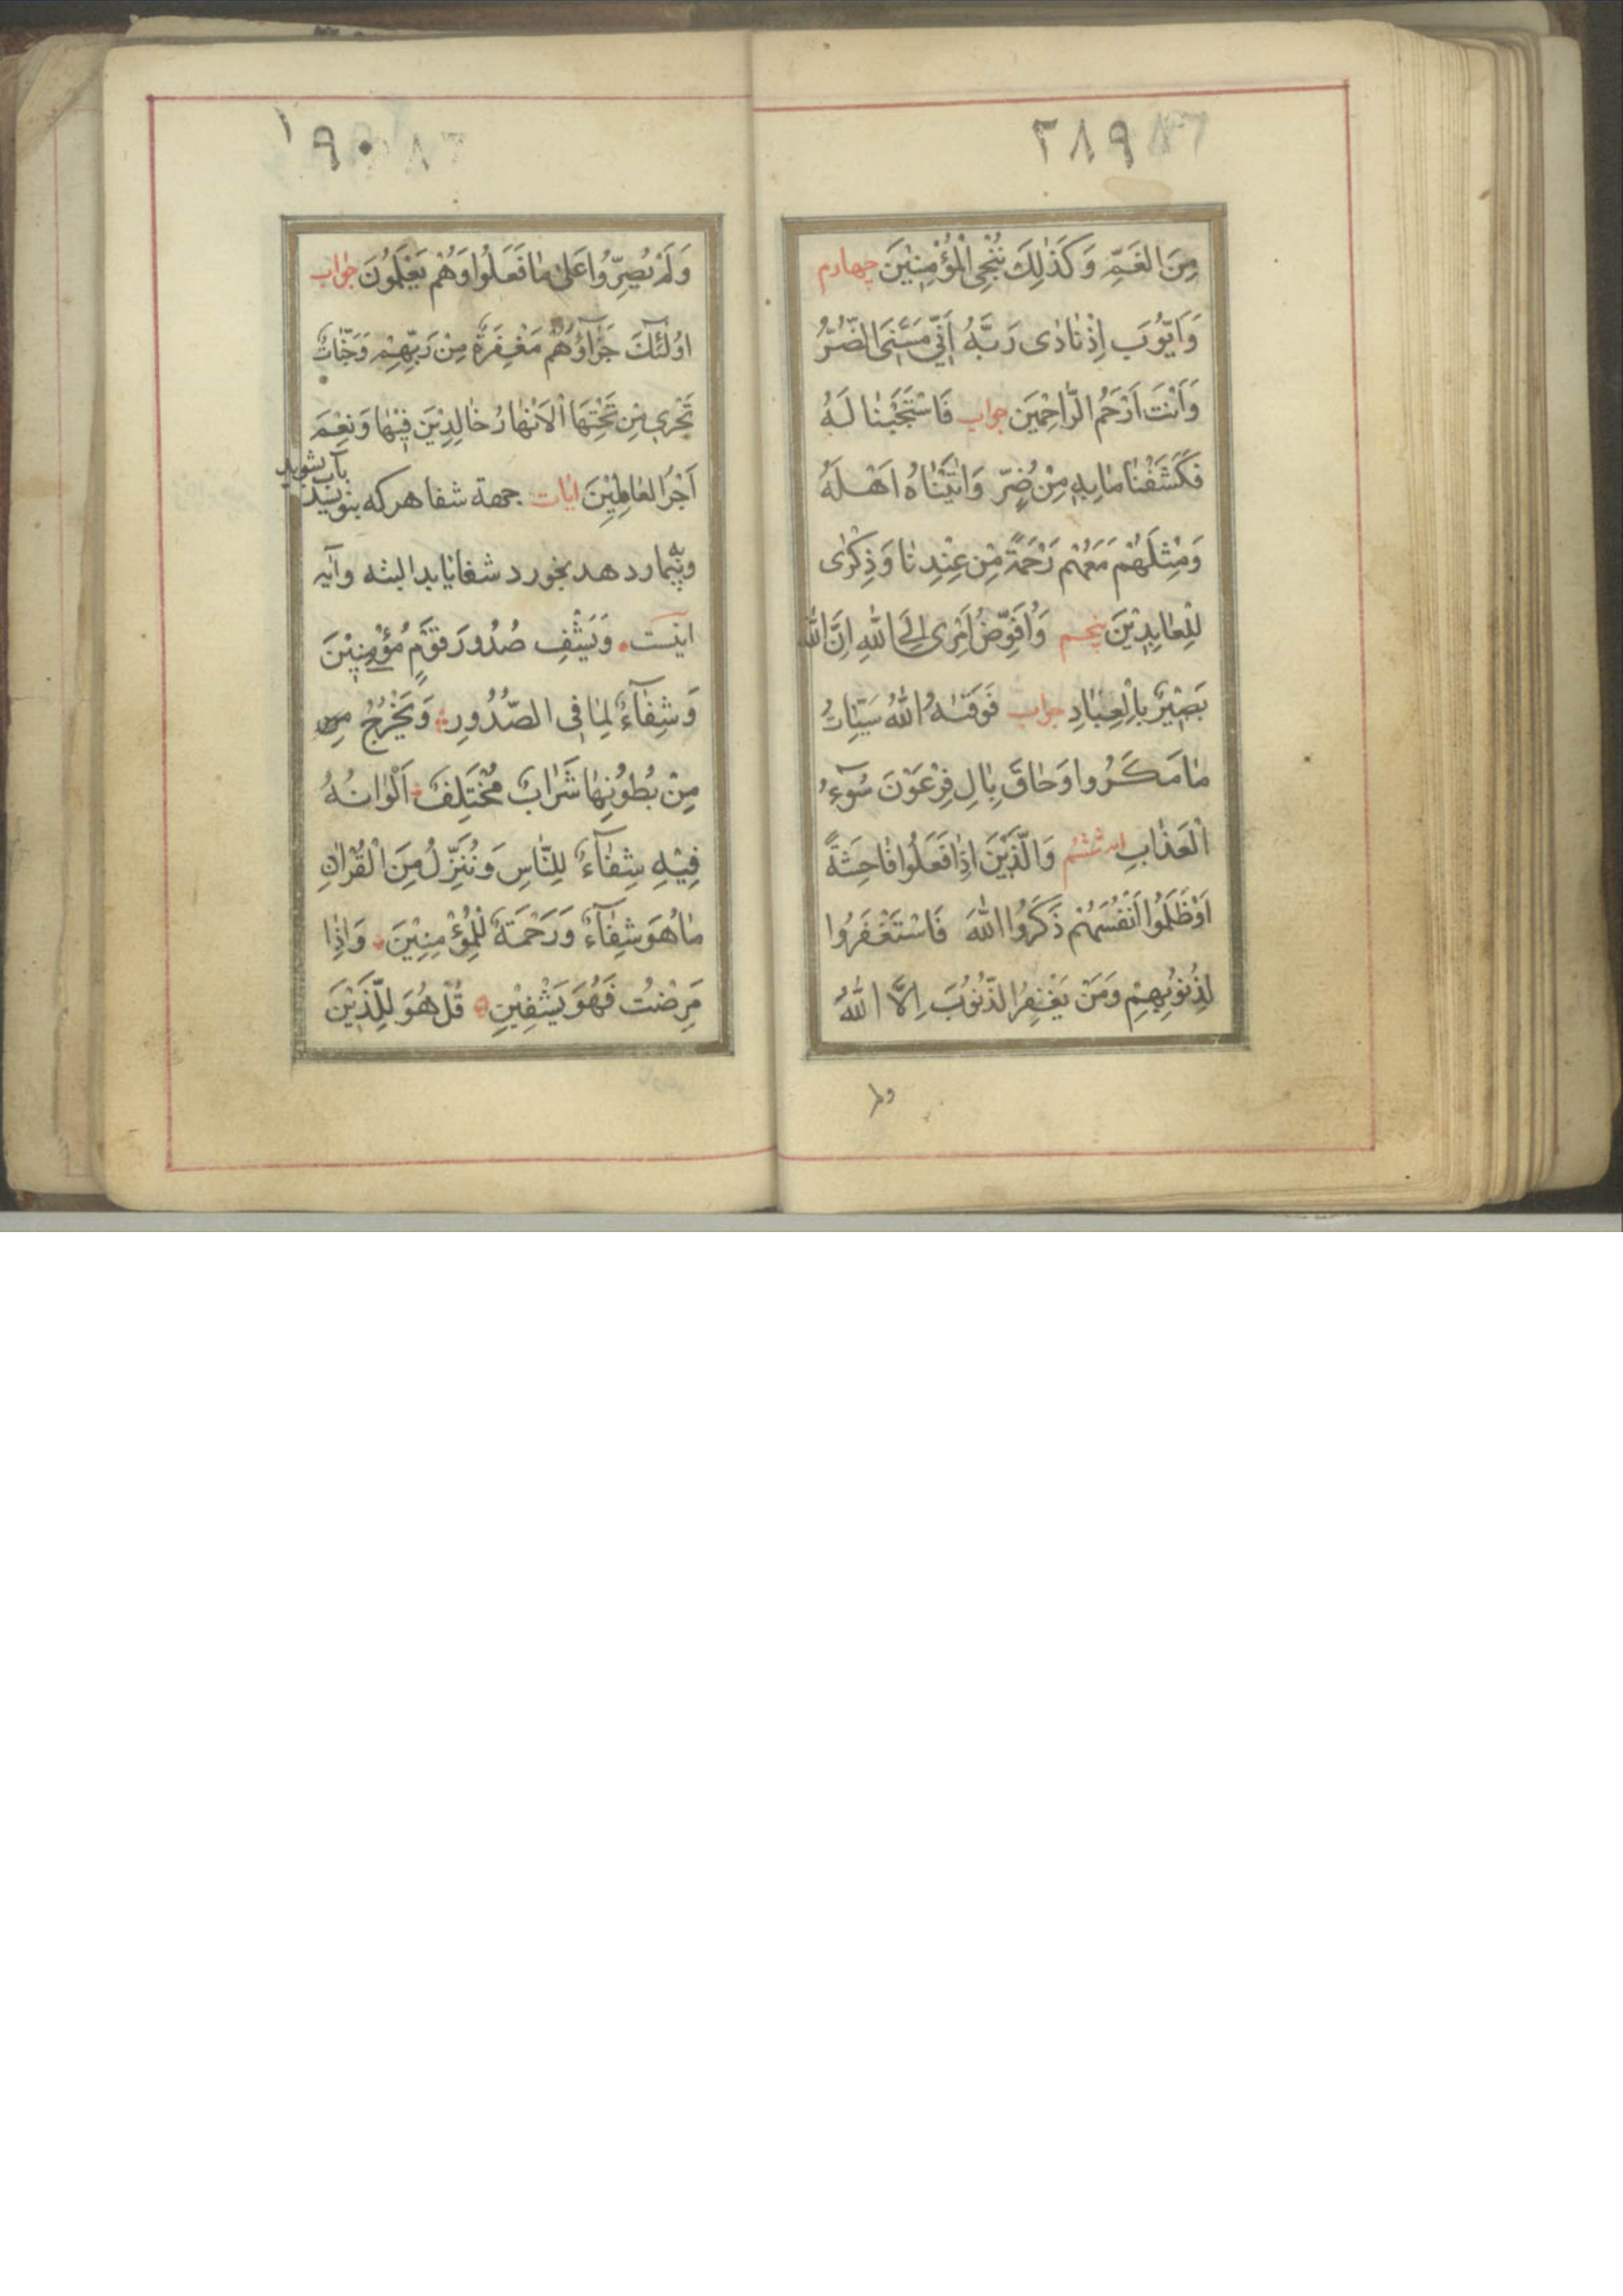 ٢٨٩
مِنَ الْغَمِّ وَكَذٰلِكَ نُنْجِي الْمُؤْمِنِيْنَ چهارم
وَاَيّوُبَ اِذْ نٰادٰى رَبَّهُ اَنّي مَسَّنِيَ الضُّرُّ
وَاَنْتَ اَرْحَمُ الرّٰاحِمْيَن جواب فَاسْتَجَبْنٰا لَهُ
فَكَشَفْنٰا مٰا بِهِ مِنْ ضُرٍّ وَاٰتَيْنٰاهُ اَهْلَهُ
وَمِثْلَهُمْ مَعَهُمْ رَحْمَةً مِنْ عِنْدِنٰا وَذِكْرٰى
لِلْعٰابِدِيْنَ پنجم وَاُفَوِّضُ اَمْرِى اِلَى اللهِ اِنَّ اللهَ
بَصْيِرٌ بِالْعِبٰادِ جواب فَوَقٰيهُ اللهُ سَيِّئٰاتُ
مٰا مَكَرُوا وَحٰاقَ بِاٰلِ فِرْعَوْنَ سُوٓءُ
الْعَذٰابِ ششم وَالَّذْيَنَ اِذٰا فَعَلُوا فٰاحِشَةً
اَوْ ظَلَمُوا اَنْفُسَهُمْ ذَكَرُوا اللهَ فَاسْتَغْفَرُوا
لِذُنُوْبِهِمْ وَمَنْ يَغْفِرُ الذُّنُوُبَ اِلَّا اللهُ
١٩٠
وَلَمْ يُصِرُّوا عَلىٰ مٰا فَعَلُوا وَهُمْ يَعْلَمُونَ جواب
اوُلٰئِكَ جَزٰآؤُهُمْ مَغْفِرَةٌ مِنْ رَبِّهِمْ وَجَنّٰاتٌ
تَجْري مِنْ تَحْتِهَا الْاَنْهٰارُ خٰالِدْيِنَ فيْهٰا وَنِعْمَ
اَجْرُ الْعٰامِلِيْنَ ايات جهة شفا هركه بنويسد
بآب بشويد
وببيمار دهد بخورد شفا يابد البته وآيه
اينست وَيَشْفِ صُدُورَ قَوْمٍ مُؤْمِنِيْنَ
وَشِفٰآءٌ لِمٰا فِي الصُّدُورِ وَيَخْرُجُ مِن
مِنْ بُطُوْنِهٰا شَرٰابٌ مُخْتَلِفٌ اَلْوٰانُهُ
فِيْهِ شِفٰآءٌ لِلنّٰاسِ وَنُنَزِّلُ مِنَ الْقُرْاٰنِ
مٰا هُوَ شِفٰآءٌ وَرَحْمَةٌ لِلْمُؤْمِنِيْنَ وَاِذٰا
مَرِضْتُ فَهُوَ يَشْفِيْنِ قُلْ هُوَ لِلَّذْيَنَ